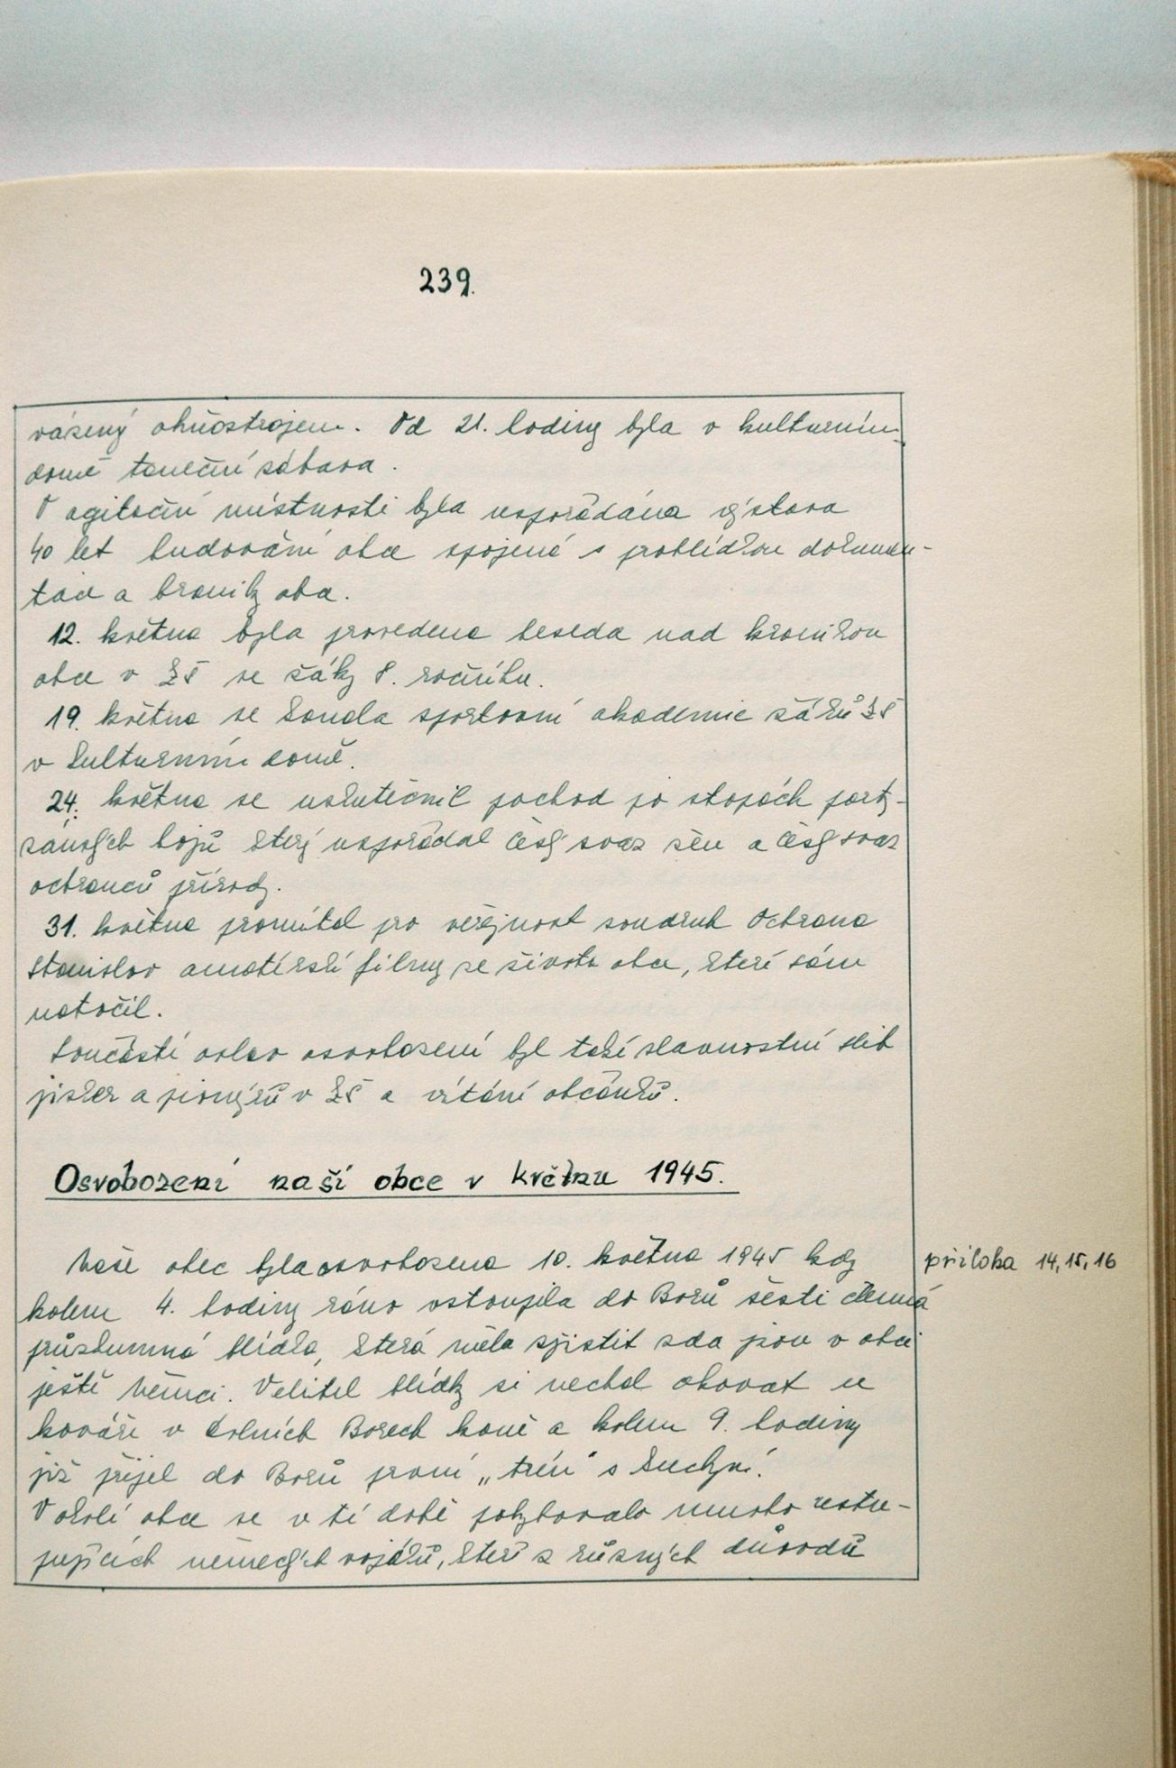 239.
vázený ohňostrojem. Od 21. hodiny byla v kulturním
domě taneční zábava.
V agitační místnosti byla uspořádána výstava
40 let budování obce spojená s prohlídkou dokumen-
tace a kronik obce.
12. května byla provedena beseda nad kronikou
obce v ZŠ se žáky 8. ročníku.
19. května se konala sportovní akademie žáků ZŠ
v kulturním domě.
24. května se uskutečnil pochod po stopách party-
zánských bojů který uspořádal český svaz žen a český svaz
ochranců přírody.
31. května promítal pro veřejnost soudruh Ochrana
Stanislav amatérské filmy ze života obce, které sám
natočil.
Součástí oslav osvobození byl také slavnostní slib
jisker a pionýrů v ZŠ a vítání občánků.
Osvobození naší obce v květnu 1945.
Naše obec byla osvobozena 10. května 1945 kdy
příloha 14, 15, 16
kolem 4. hodiny ráno vstoupila do Borů šesti členná
průzkumná hlídka, která měla zjistit zda jsou v obci
ještě Němci. Velitel hlídky si nechal okovat u
kováře v Dolních Borech koně a kolem 9. hodiny
již přijel do Borů první „trén" s kuchyní.
V okolí obce se v té době pohybovalo mnoho ustu-
pujících německých vojáků, kteří z různých důvodů